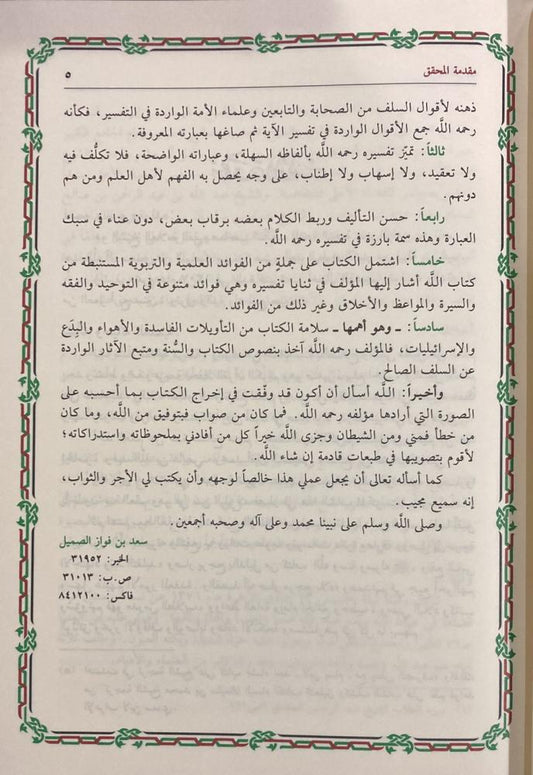 مقدمة المحقق ٥
ذهنه لأقوال السلف من الصحابة والتابعين وعلماء الأمة الواردة في التفسير، فكأنه
رحمه اللَّه جمع الأقوال الواردة في تفسير الآية ثم صاغها بعبارته المعروفة.
ثالثاً: تميّز تفسيره رحمه اللَّه بألفاظه السهلة، وعباراته الواضحة، فلا تكلُّف فيه
ولا تعقيد، ولا إسهاب ولا إطناب، على وجه يحصل به الفهم لأهل العلم ومن هم
دونهم.
رابعاً: حسن التأليف وربط الكلام بعضه برقاب بعض، دون عناء في سبك
العبارة وهذه سمة بارزة في تفسيره رحمه اللَّه.
خامساً: اشتمل الكتاب على جملةٍ من الفوائد العلمية والتربوية المستنبطة من
كتاب اللَّه أشار إليها المؤلف في ثنايا تفسيره وهي فوائد متنوعة في التوحيد والفقه
والسيرة والمواعظ والأخلاق وغير ذلك من الفوائد.
سادساً: ـ وهو أهمها ـ سلامة الكتاب من التأويلات الفاسدة والأهواء والبِدَع
والإسرائيليات، فالمؤلف رحمه اللَّه آخذ بنصوص الكتاب والسُّنة ومتبع الآثار الواردة
عن السلف الصالح.
وأخيراً: اللَّه أسأل أن أكون قد وفّقت في إخراج الكتاب بما أحسبه على
الصورة التي أرادها مؤلفه رحمه اللَّه. فما كان من صواب فبتوفيق من اللَّه، وما كان
من خطأ فمني ومن الشيطان وجزى اللَّه خيراً كل من أفادني بملحوظاته واستدراكاته؛
لأقوم بتصويبها في طبعات قادمة إن شاء اللَّه.
كما أسأله تعالى أن يجعل عملي هذا خالصاً لوجهه وأن يكتب لي الأجر والثواب،
إنه سميع مجيب.
وصلى اللَّه وسلم على نبينا محمد وعلى آله وصحبه أجمعين.
سعد بن فواز الصميل
الخبر: ٣١٩٥٢
ص.ب: ٣١٠١٣
فاكس: ٨٤١٢١٠٠